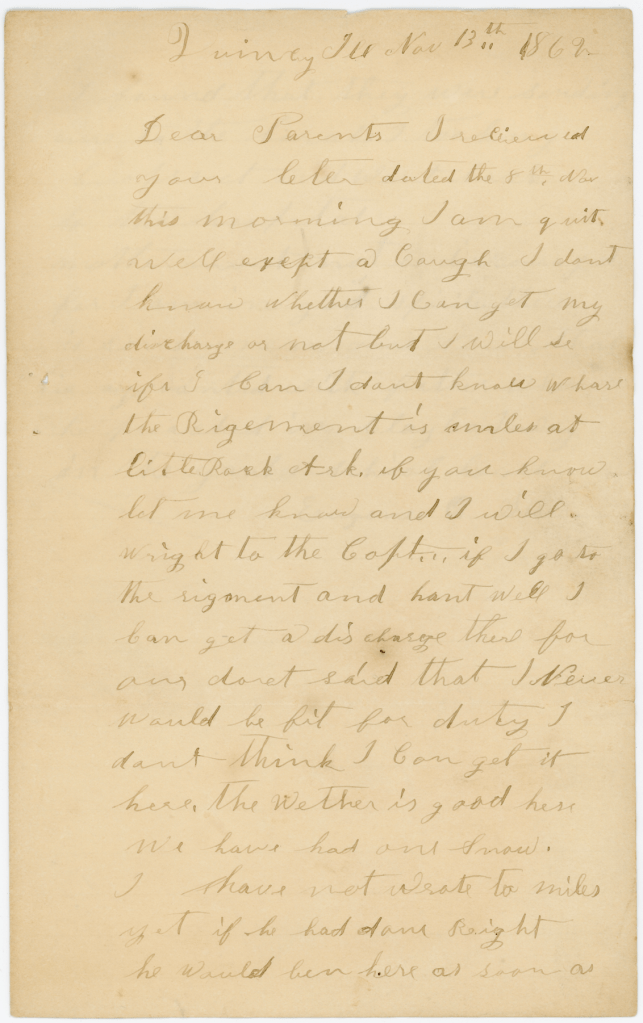 Quincy Ill Nov 13th 1862
Dear Parents I recieewed
your leter dated the 8th. Nov
this morning I am quite
well exept a Cough I dont
know whether I Can get my
discharge or not but I will se
if I Can I dont know whare
the Rigement is miles at
Little Rock Ark. if you know.
let me know and I will.
wright to the Capt... if I go to
the rigment and hant well I
Can get a discharge there for
our doret said that I Never
would be fit for duty I
dont think I Can get it
here. the Wether is good here
We have had one Snow.
I have not wrote to miles
yet if he had done Right
he would ben here as soon as